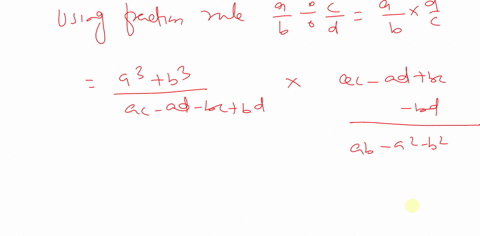 Using fraction rule a/b ÷ c/d = a/b × d/c
= a³+b³ / ac-ad-bc+bd × ac-ad+bc-bd / ab-a²-b²